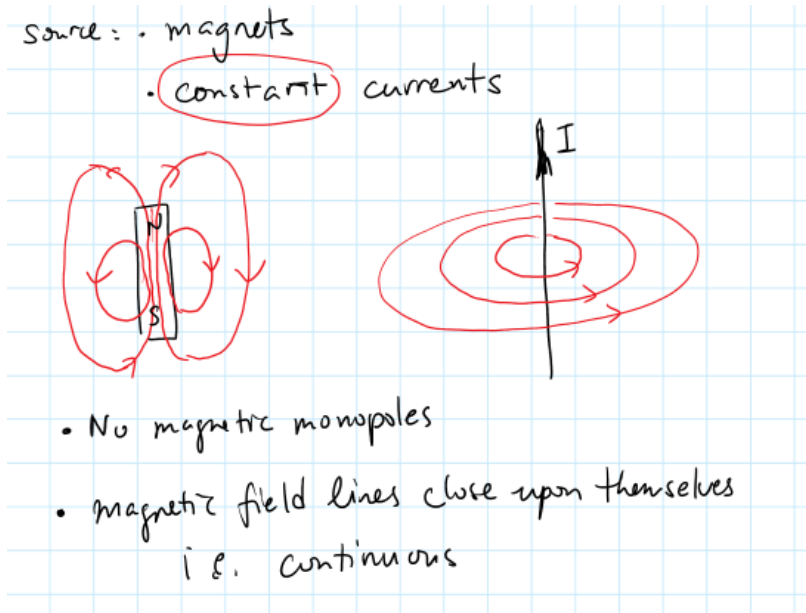 source: • magnets
• constant currents
I
N
S
• No magnetic monopoles
• magnetic field lines close upon themselves
i.e. continuous